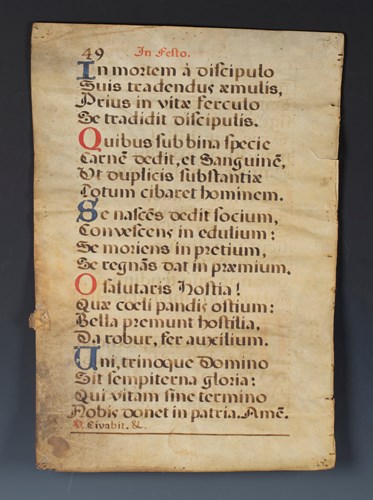 49 In Festo.
In mortem à discipulo
Suis tradendus æmulis,
Prius in vitæ ferculo
Se tradidit discipulis.
Quibus sub bina specie
Carnē dedit, et Sanguinē,
Ut duplicis substantiæ
Totum cibaret hominem.
Se nascēs dedit socium,
Convescens in edulium:
Se moriens in pretium,
Se regnās dat in præmium.
O salutaris Hostia!
Quæ coeli pandis ostium:
Bella premunt hostilia,
Da robur, fer auxilium.
Uni, trinoque Domino
Sit sempiterna gloria:
Qui vitam sine termino
Nobis donet in patria. Amē.
℣. Civabit. &c.